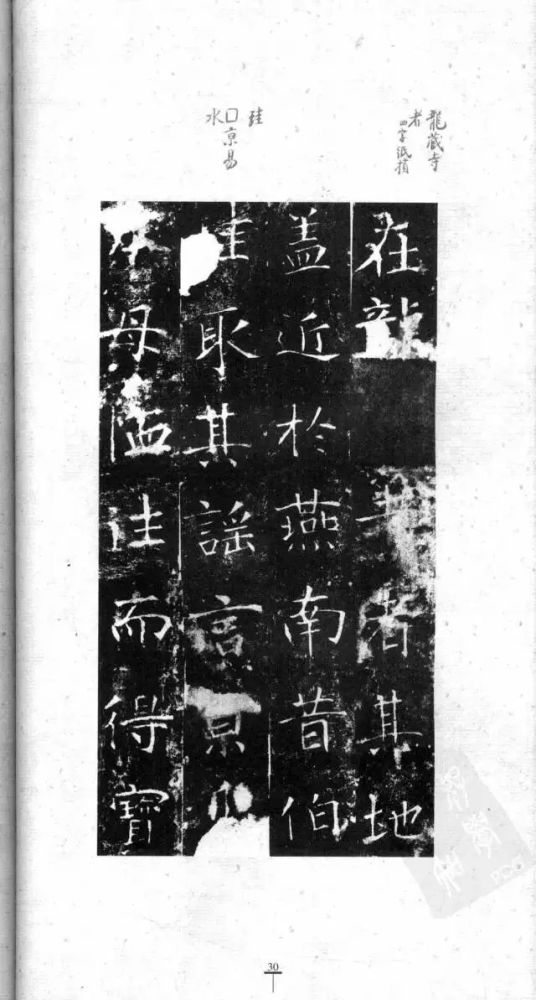 龍藏寺
者
四字紙損
珪
口京易
水
在龍寺者其地
盖近於燕南昔伯
珪取其謡言京
母恤往而得寶
30